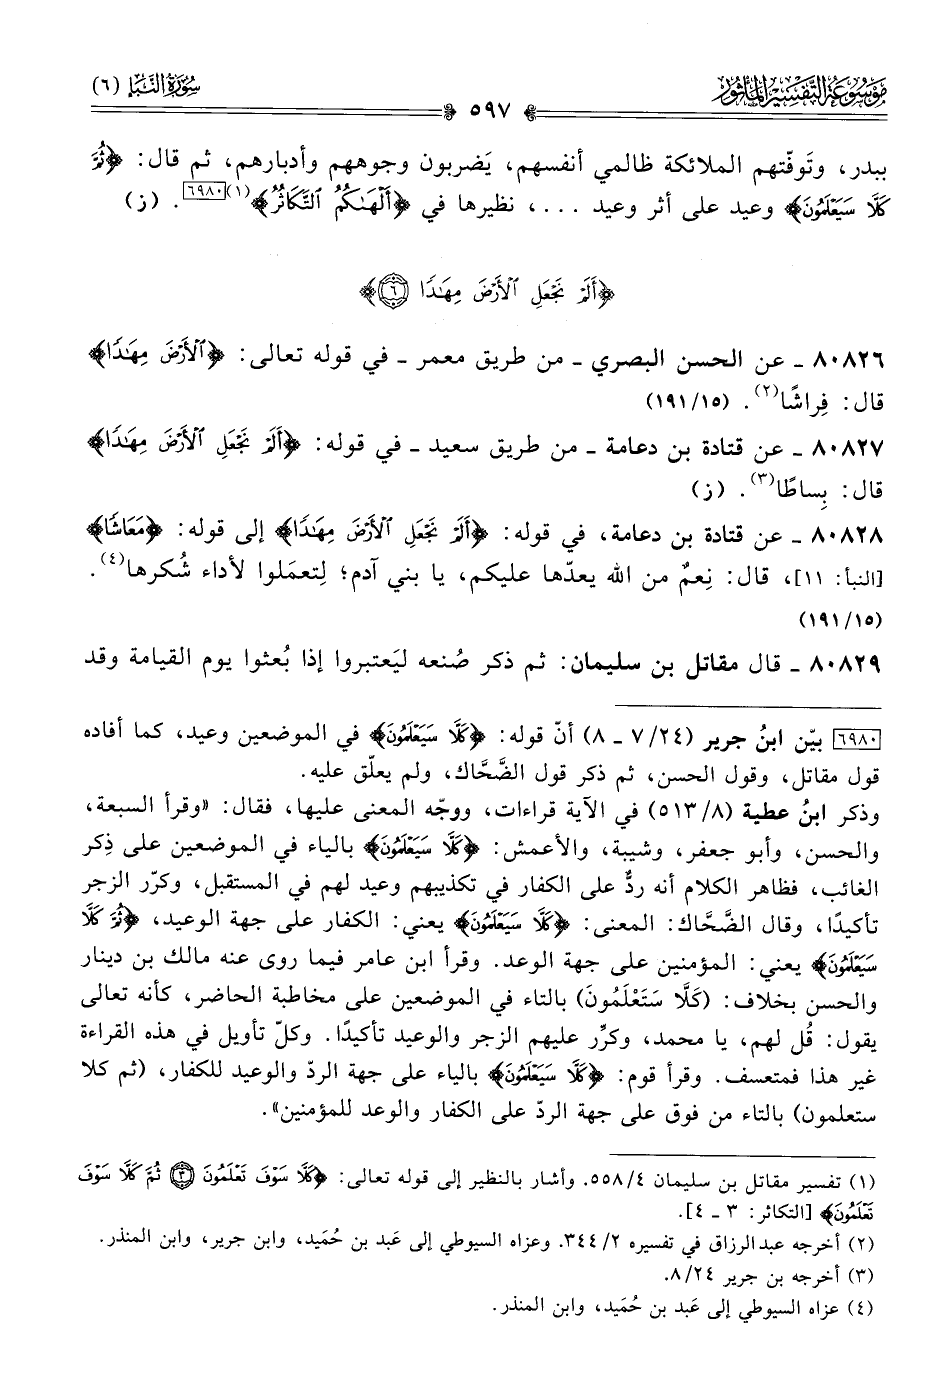 مَوْسُوعَة التَّفْسِيْر المَأْثُور
سُورَةُ النَّبَإِ (٦)
٥٩٧
ببدر، وتَوفّتهم الملائكة ظالمي أنفسهم، يَضربون وجوههم وأدبارهم، ثم قال: ﴿ثُمَّ
كَلَّا سَيَعْلَمُونَ﴾ وعيد على أثر وعيد ...، نظيرها في ﴿أَلْهَىٰكُمُ ٱلتَّكَاثُرُ﴾(١)[٦٩٨٠]. (ز)
﴿أَلَمْ نَجْعَلِ ٱلْأَرْضَ مِهَٰدًا ٦﴾
٨٠٨٢٦ ـ عن الحسن البصري ـ من طريق معمر ـ في قوله تعالى: ﴿ٱلْأَرْضَ مِهَٰدًا﴾
قال: فِراشًا(٢). (١٥/ ١٩١)
٨٠٨٢٧ ـ عن قتادة بن دعامة ـ من طريق سعيد ـ في قوله: ﴿أَلَمْ نَجْعَلِ ٱلْأَرْضَ مِهَٰدًا﴾
قال: بِساطًا(٣). (ز)
٨٠٨٢٨ ـ عن قتادة بن دعامة، في قوله: ﴿أَلَمْ نَجْعَلِ ٱلْأَرْضَ مِهَٰدًا﴾ إلى قوله: ﴿مَعَاشًا﴾
[النبأ: ١١]، قال: نِعمٌ من الله يعدّها عليكم، يا بني آدم؛ لِتعمَلوا لأداء شُكرها(٤).
(١٥/ ١٩١)
٨٠٨٢٩ ـ قال مقاتل بن سليمان: ثم ذكر صُنعه ليَعتبروا إذا بُعثوا يوم القيامة وقد
[٦٩٨٠] بيّن ابنُ جرير (٢٤/ ٧ ـ ٨) أنّ قوله: ﴿كَلَّا سَيَعْلَمُونَ﴾ في الموضعين وعيد، كما أفاده
قول مقاتل، وقول الحسن، ثم ذكر قول الضَّحَّاك، ولم يعلّق عليه.
وذكر ابنُ عطية (٨/ ٥١٣) في الآية قراءات، ووجّه المعنى عليها، فقال: «وقرأ السبعة،
والحسن، وأبو جعفر، وشيبة، والأعمش: ﴿كَلَّا سَيَعْلَمُونَ﴾ بالياء في الموضعين على ذِكر
الغائب، فظاهر الكلام أنه ردٌّ على الكفار في تكذيبهم وعيد لهم في المستقبل، وكرّر الزجر
تأكيدًا، وقال الضَّحَّاك: المعنى: ﴿كَلَّا سَيَعْلَمُونَ﴾ يعني: الكفار على جهة الوعيد، ﴿ثُمَّ كَلَّا
سَيَعْلَمُونَ﴾ يعني: المؤمنين على جهة الوعد. وقرأ ابن عامر فيما روى عنه مالك بن دينار
والحسن بخلاف: (كَلَّا سَتَعْلَمُونَ) بالتاء في الموضعين على مخاطبة الحاضر، كأنه تعالى
يقول: قُل لهم، يا محمد، وكرِّر عليهم الزجر والوعيد تأكيدًا. وكلّ تأويل في هذه القراءة
غير هذا فمتعسف. وقرأ قوم: ﴿كَلَّا سَيَعْلَمُونَ﴾ بالياء على جهة الردّ والوعيد للكفار، (ثم كلا
ستعلمون) بالتاء من فوق على جهة الردّ على الكفار والوعد للمؤمنين».
(١) تفسير مقاتل بن سليمان ٤/ ٥٥٨. وأشار بالنظير إلى قوله تعالى: ﴿كَلَّا سَوْفَ تَعْلَمُونَ ٣ ثُمَّ كَلَّا سَوْفَ
تَعْلَمُونَ﴾ [التكاثر: ٣ ـ ٤].
(٢) أخرجه عبدالرزاق في تفسيره ٢/ ٣٤٤. وعزاه السيوطي إلى عَبد بن حُمَيد، وابن جرير، وابن المنذر.
(٣) أخرجه بن جرير ٢٤/ ٨.
(٤) عزاه السيوطي إلى عَبد بن حُمَيد، وابن المنذر.